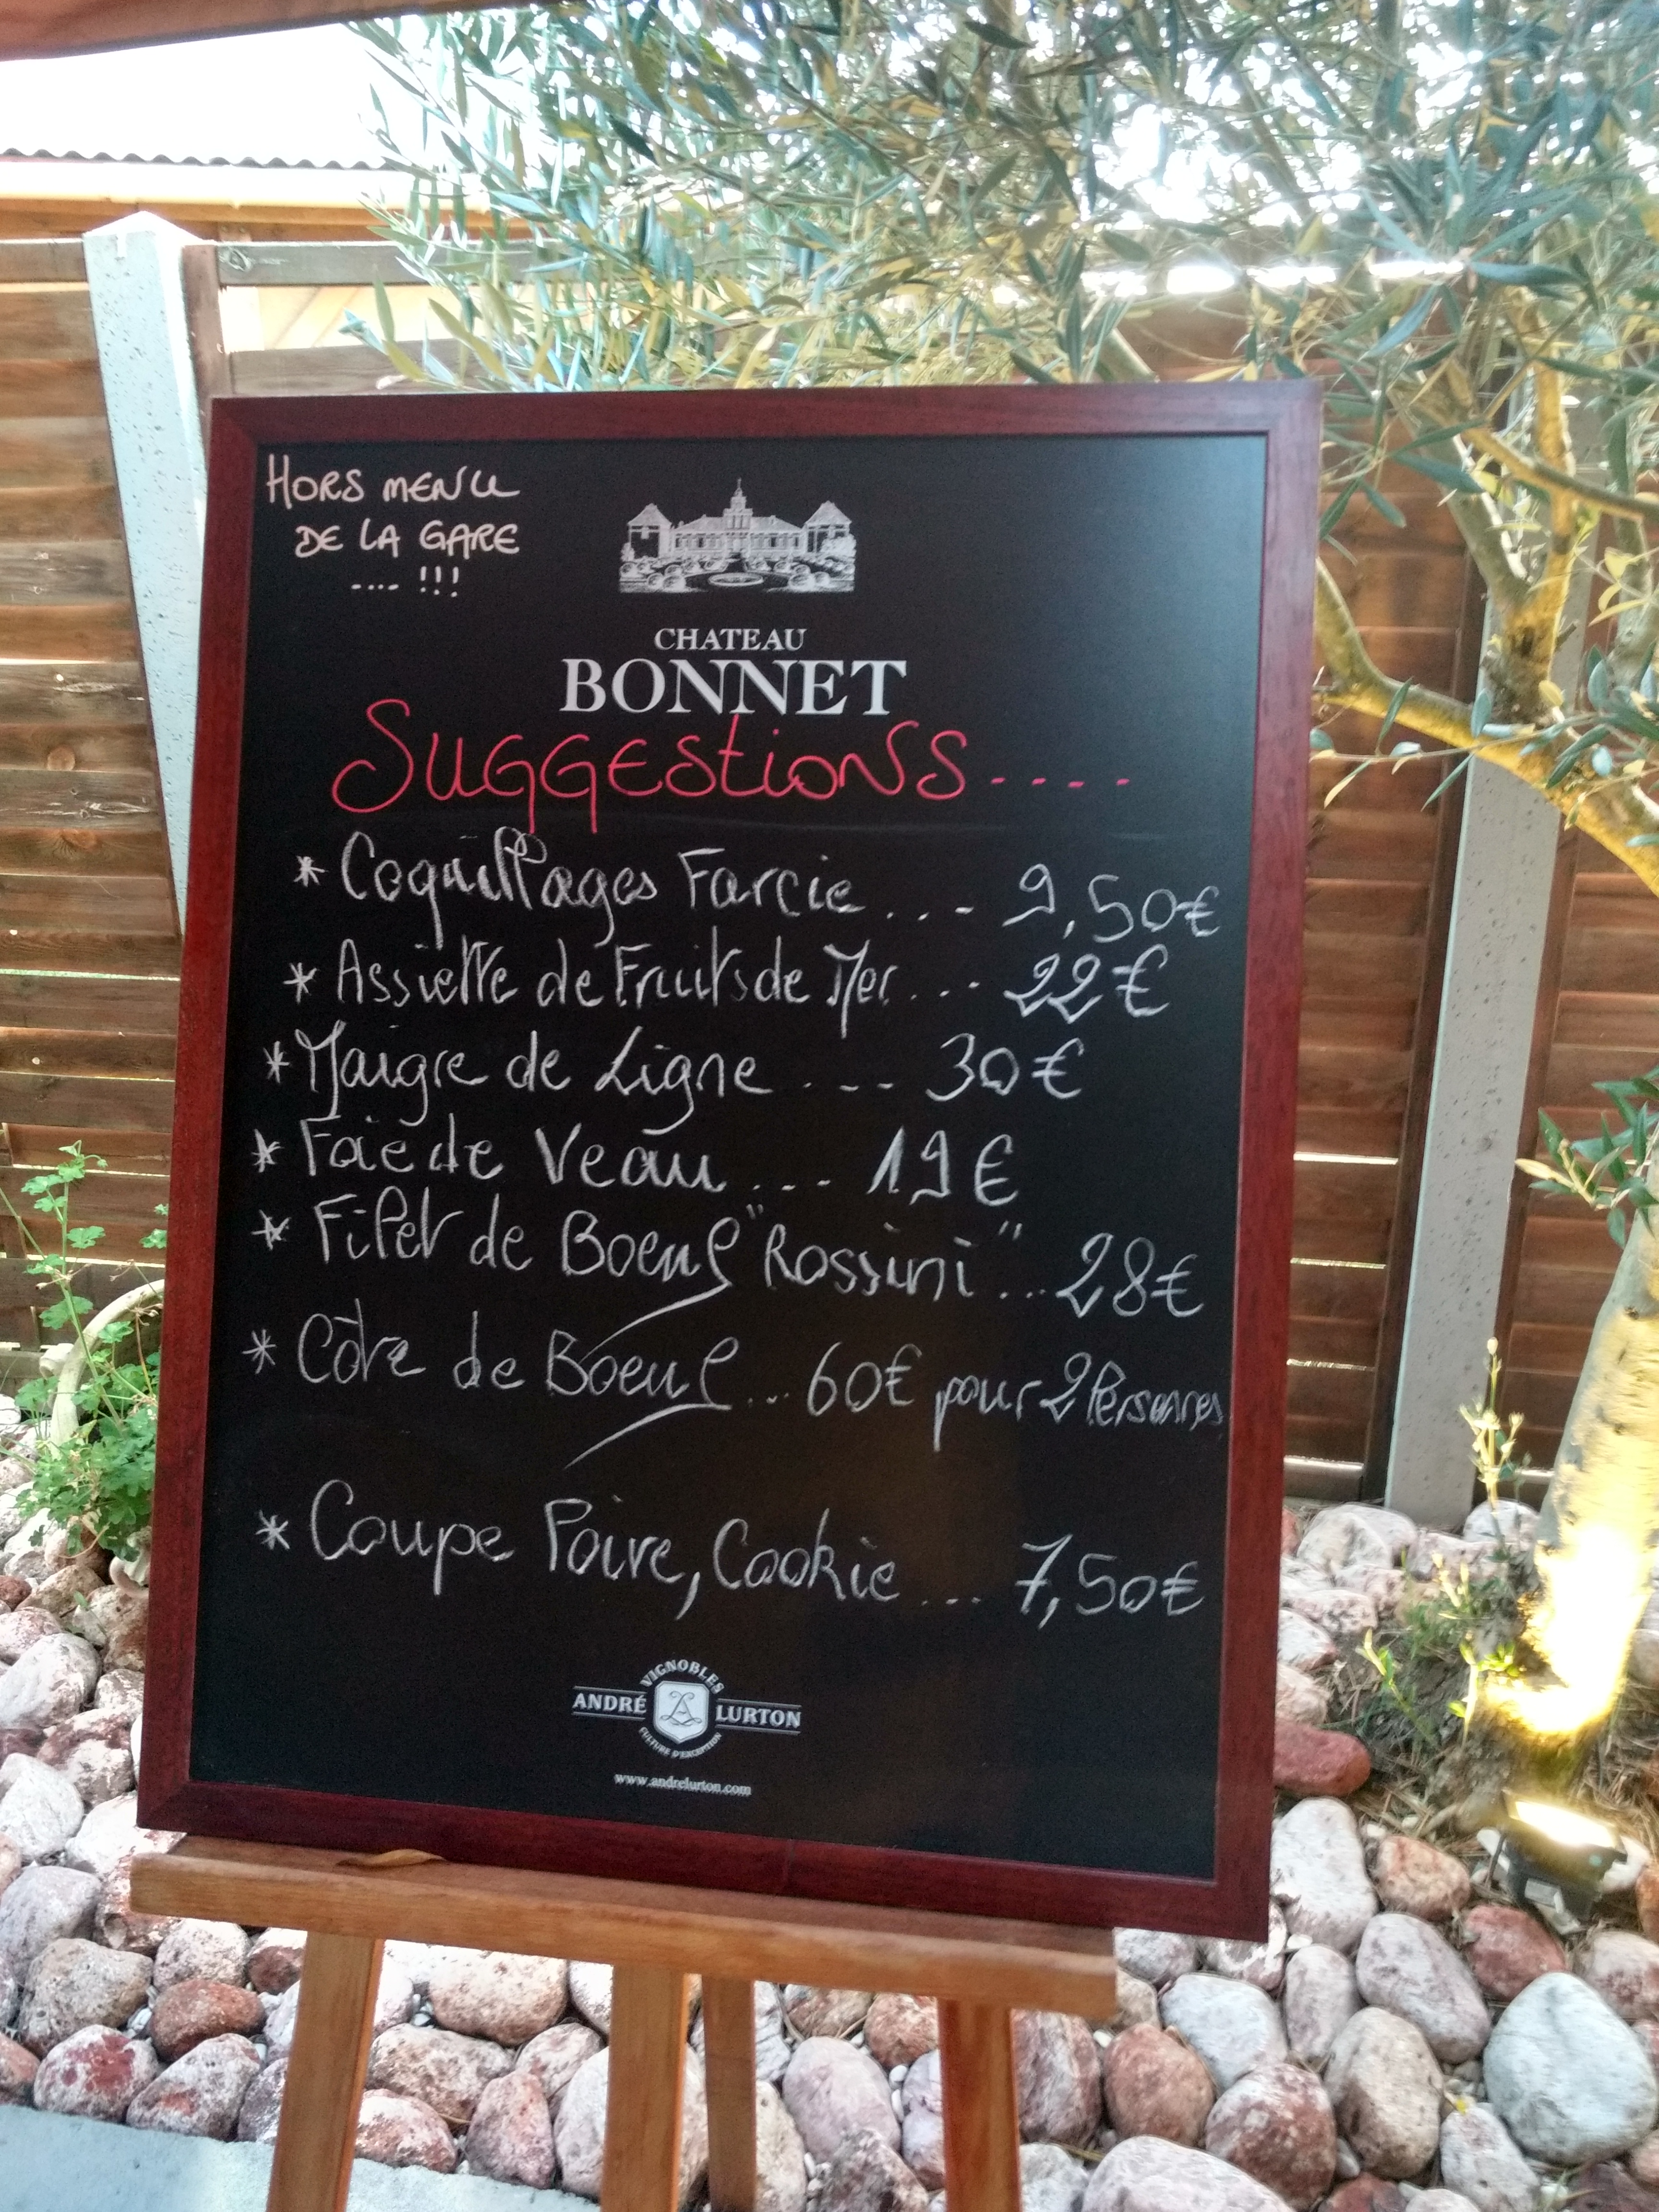 HORS MENU
DE LA GARE
.... !!!
CHATEAU
BONNET
SUGGEStioNS....
* Coquillages Farcie.... 9,50€
* Assiette de Fruits de Mer.... 22€
* Maigre de Ligne .... 30€
* Foie de Veau.... 19€
* Filet de Boeuf "Rossini"... 28€
* Côte de Boeuf... 60€ pour 2 Personnes
* Coupe Poire, Cookie.... 7,50€
VIGNOBLES
ANDRÉ LURTON
CULTURE D'EXCEPTION
www.andrelurton.com